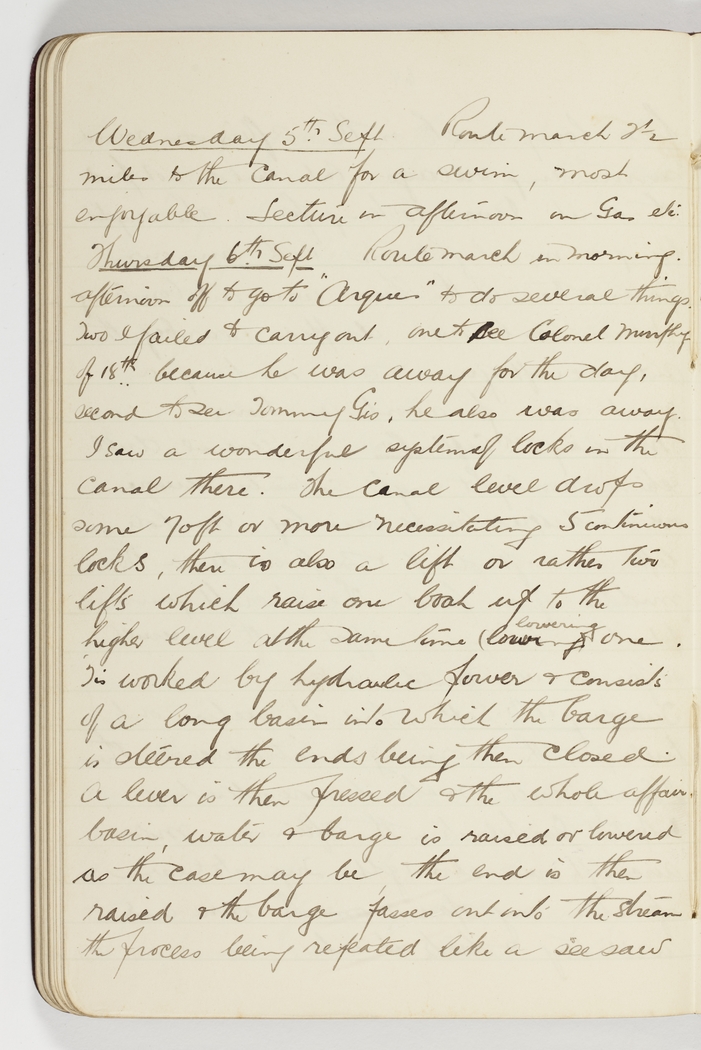 Wednesday 5th Sept Route march 2½
miles to the canal for a swim, most
enjoyable. Lecture in afternoon on Gas etc.
Thursday 6th Sept Route march in morning.
afternoon off to go to "Arques" to do several things.
Two I failed to carry out, one to see Colonel Murphy
of 18th because he was away for the day,
second to see Tommy Gis, he also was away.
I saw a wonderful system of locks in the
canal there. The canal level drops
some 70ft or more necessitating 5 continuous
locks, there is also a lift or rather two
lifts which raise one boat up to the
lowering
higher level at the same time (lowering) one.
Tis worked by hydraulic power & consists
of a long basin into which the barge
is steered the ends being then closed.
A lever is then pressed & the whole affair.
basin, water & barge is raised or lowered
as the case may be, the end is then
raised & the barge passes out into the stream
the process being repeated like a seesaw